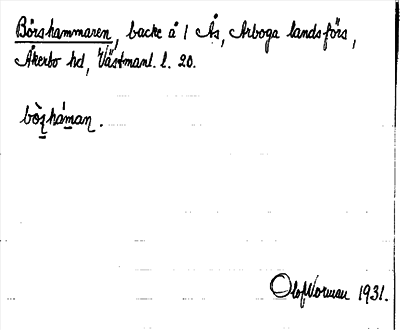 Börshammaren, backe å 1 Ås, Arboga landsförs,
Åkerbo hd, Västmanl. l. 20.
bòʐhámaɳ.
Olof Norman 1931.